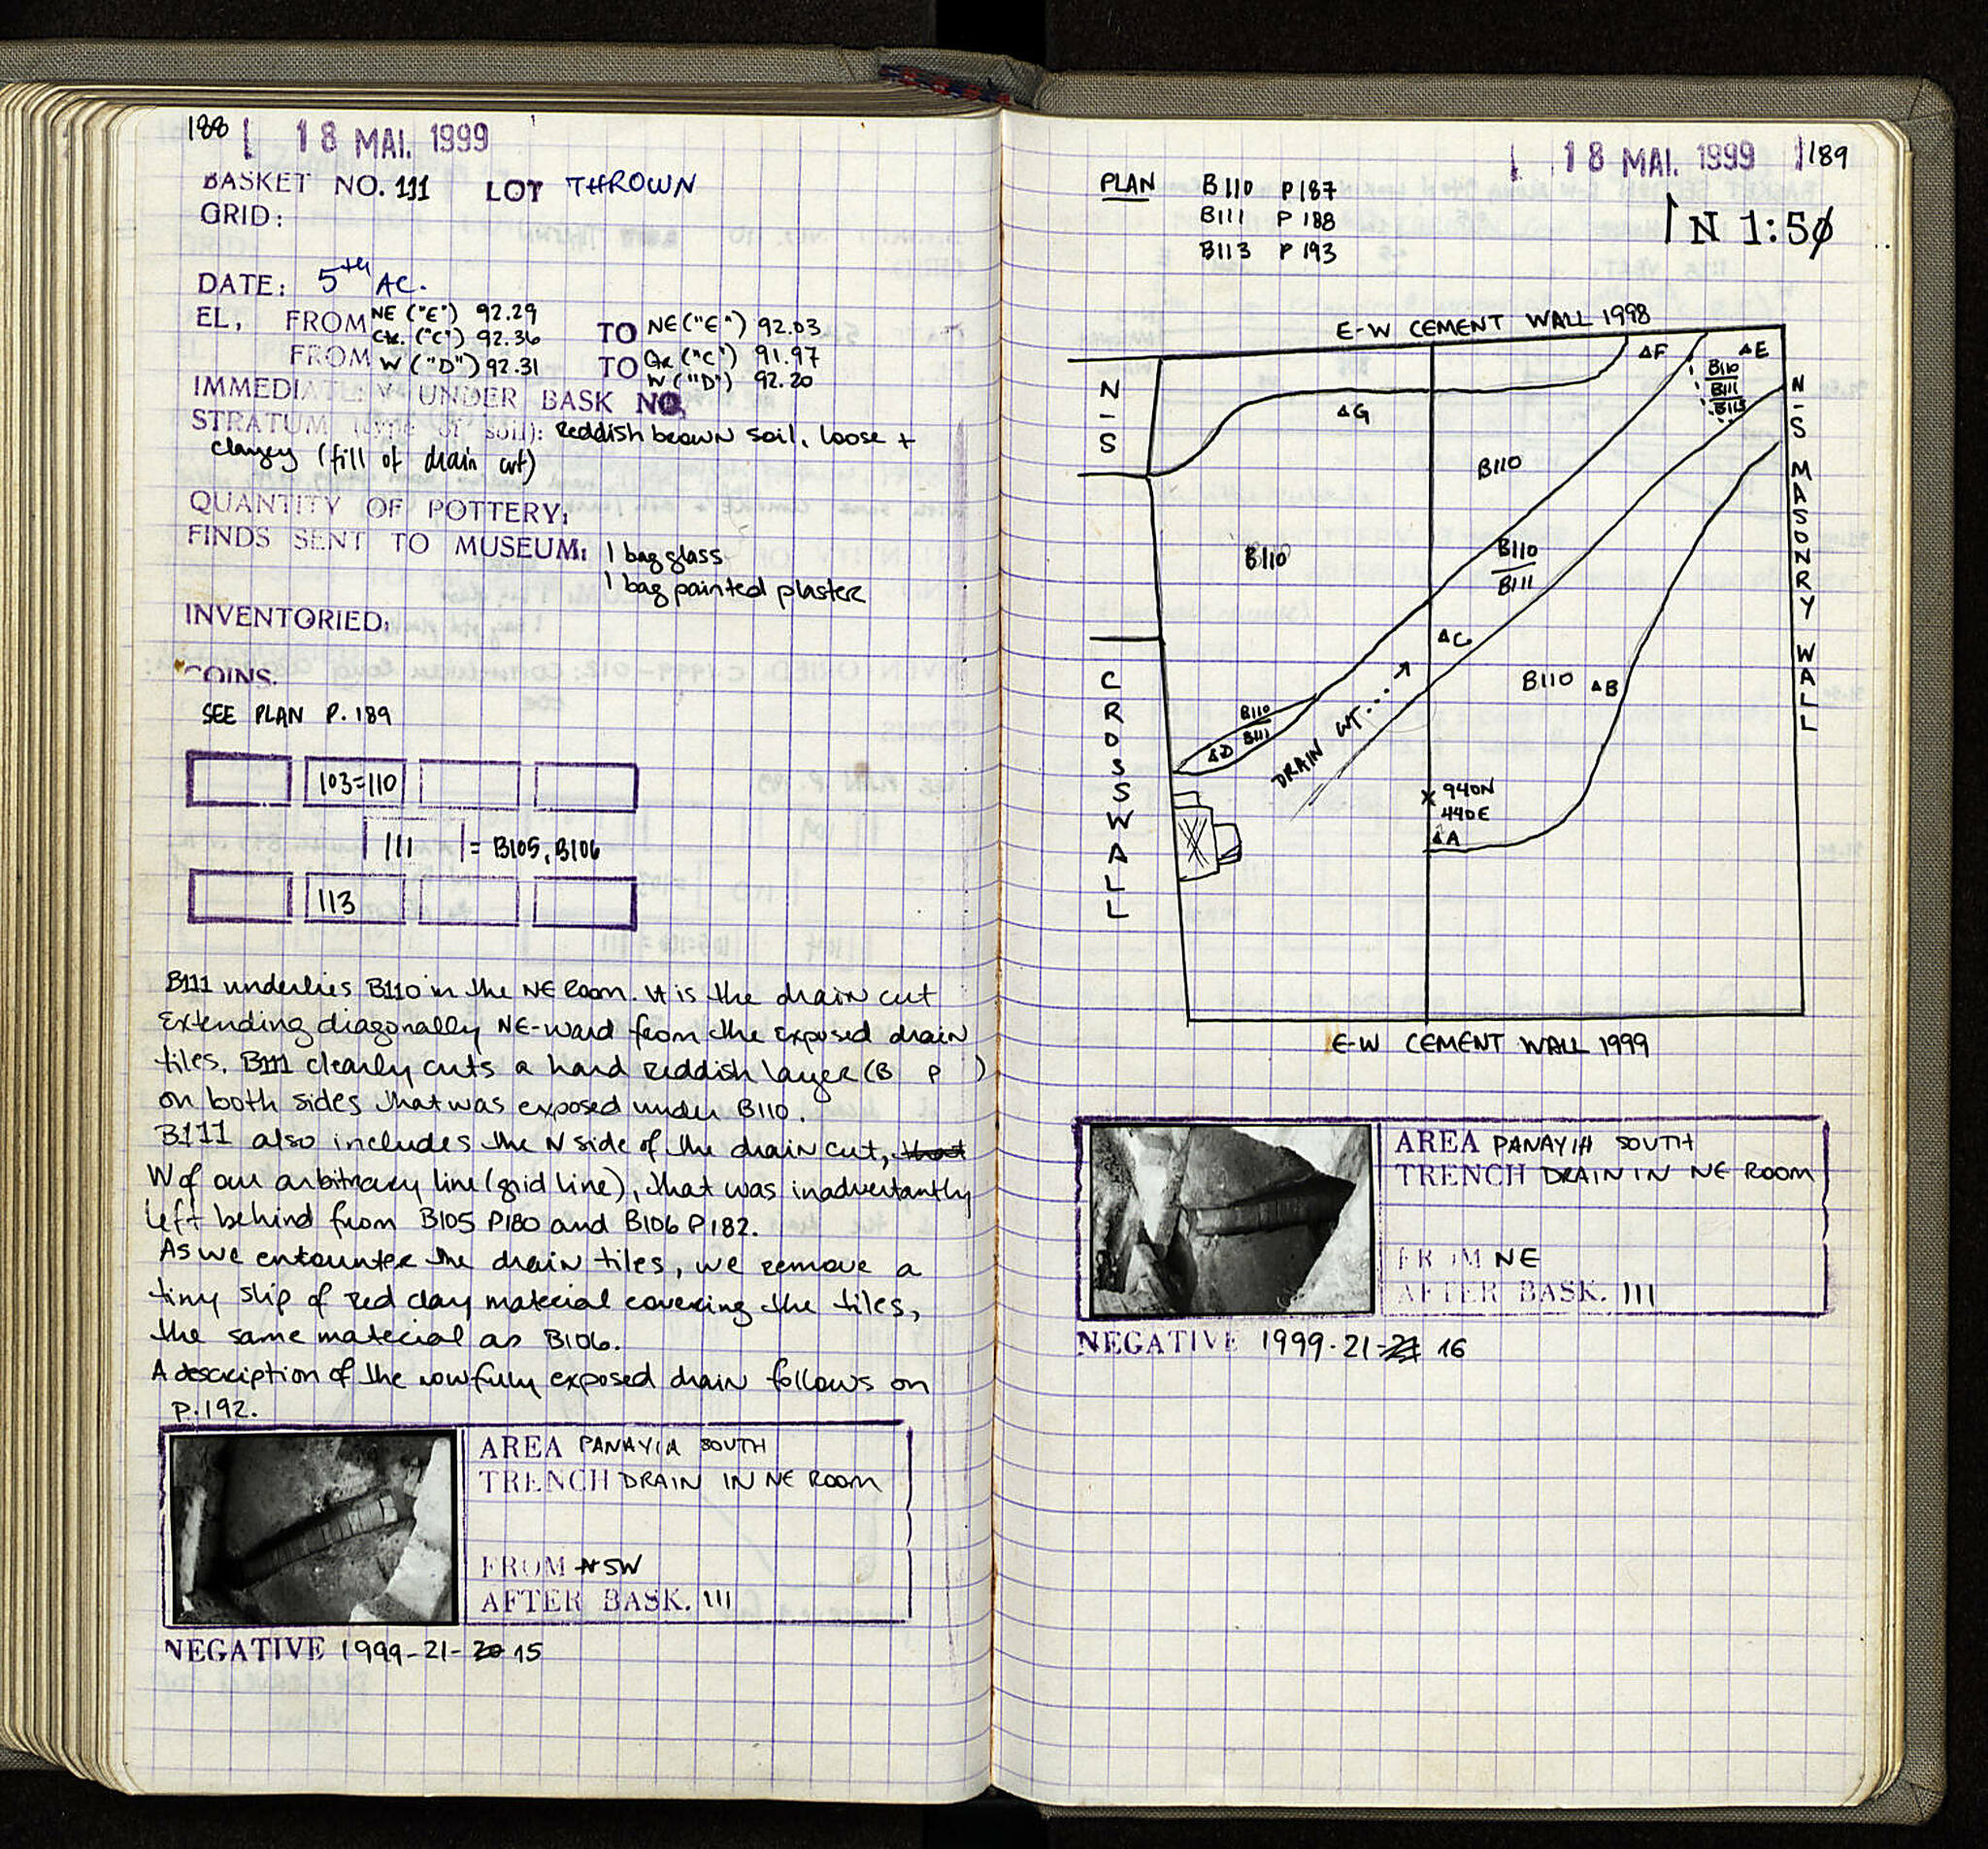 188
18 MAI. 1999
BASKET NO. 111 LOT THROWN
GRID:
DATE: 5th AC.
EL, FROM NE ("E") 92.29 TO NE ("E") 92.03
Ctr. ("C") 92.36
FROM W ("D") 92.31 TO Ctr. ("C") 91.97
W ("D") 92.20
IMMEDIATELY UNDER BASK NO.
STRATUM (type of soil): Reddish brown soil, loose +
clayey (fill of drain cut)
QUANTITY OF POTTERY:
FINDS SENT TO MUSEUM: 1 bag glass
1 bag painted plaster
INVENTORIED:
COINS.
SEE PLAN P. 189
103=110
111 = B105, B106
113
B111 underlies B110 in the NE Room. It is the drain cut
extending diagonally NE-ward from the exposed drain
tiles. B111 clearly cuts a hard reddish layer (B P )
on both sides that was exposed under B110.
B111 also includes the N side of the drain cut, that
W of our arbitrary line (grid line), that was inadvertantly
left behind from B105 P180 and B106 P182.
As we encounter the drain tiles, we remove a
tiny slip of red clay material covering the tiles,
the same material as B106.
A description of the now fully exposed drain follows on
P.192.
AREA PANAYIA SOUTH
TRENCH DRAIN IN NE ROOM
FROM N SW
AFTER BASK. 111
NEGATIVE 1999-21-20 15
18 MAI. 1999
189
PLAN B110 P187
B111 P 188
B113 P 193
N 1:50
E-W CEMENT WALL 1998
N-S
CROSSWALL
N-S MASONRY WALL
ΔF
ΔE
B110
B111
B113
ΔG
B110
B110
B110
B111
ΔC
B110 ΔB
B110
B111
ΔD
DRAIN WT...
940N
440E
ΔA
E-W CEMENT WALL 1999
AREA PANAYIA SOUTH
TRENCH DRAIN IN NE ROOM
FROM NE
AFTER BASK. 111
NEGATIVE 1999-21-21 16